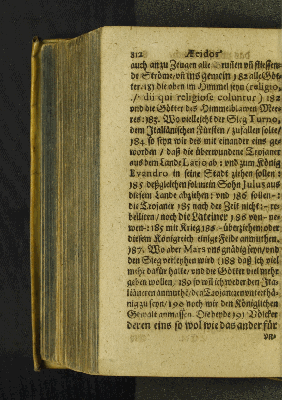 312 Æcidos
auch an zu Zeugen alle Brunen uñ fliessen-
de Ströme / uñ ins gemein 182 alle Göt-
ter. 183 die oben im Himmel seyn (religio,
./. dii qui religiose coluntur) 182
und die Götter des Himmelblawen Mee-
res: 183. Wo vielleicht der Sieg Turno,
dem Italiänischen Fürsten / zufallen solte /
184 so seyn wir des mit einander eins ge-
worden / daß die überwundene Trojaner
aus dem Lande Latio ab : und zum König
Evandro in seine Stadt ziehen sollen :
185 deßgleichen sol mein Sohn Julus aus
diesem Lande abziehen : und 186 sollen
die Trojaner 185 nach der Zeit nicht
rebelliren / noch die Lateiner 186
185 mit Krieg 186 überziehen oder
diesem Königreich einige Fehde anmuthen.
187. Wo aber Mars uns gnädig seyn / und
den Sieg verleyhen wird (188 daß ich viel
mehr dafür halte / und die Götter viel mehr
geben wollen / 189 so wil ich weder den Ita-
liänern anmuthē / den Trojanern unterthä-
nig zu seyn / 190 noch mir den Königlichen
Gewalt anmassen. Die beyde 191 Völcker
deren eins so wol wie das ander für
un-